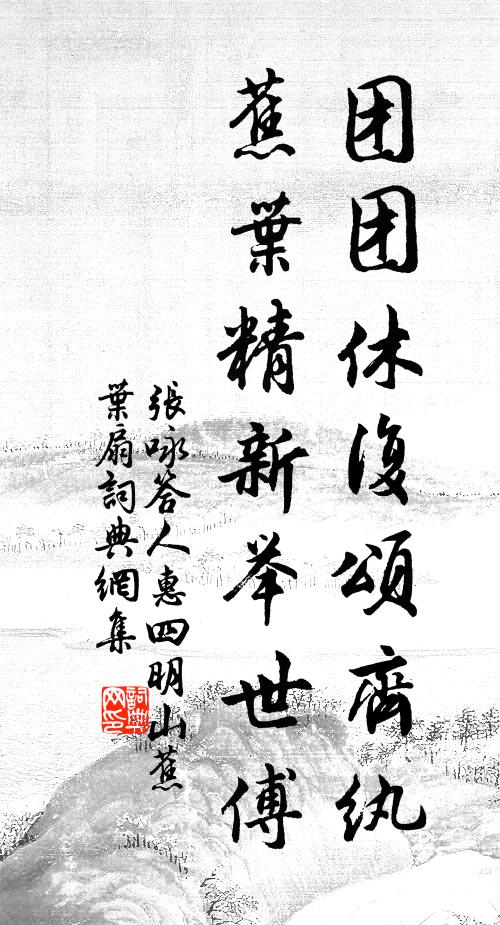 团团休復頌齊紈
蕉葉精新举世傅
張咏答人惠四明山蕉
葉扇詞典網集